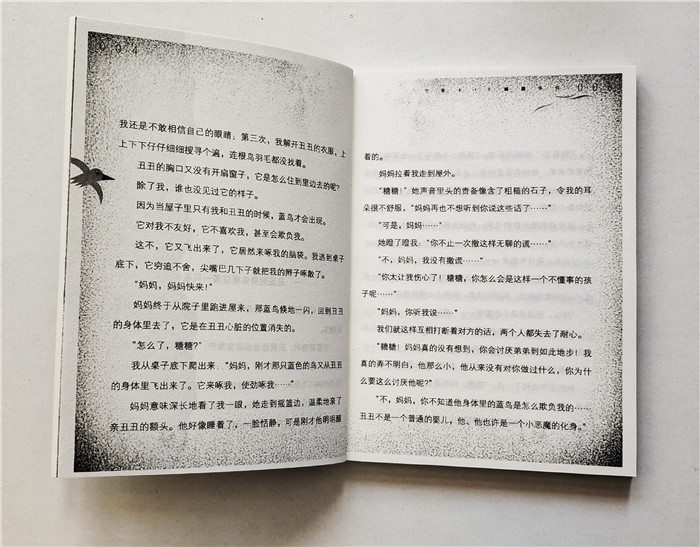 我还是不敢相信自己的眼睛；第三次，我解开丑丑的衣服，上
上下下仔仔细细搜寻个遍，连根鸟羽毛都没找着。
丑丑的胸口又没有开扇窗子，它是怎么住到里边去的呢？
除了我，谁也没见过它的样子。
因为当屋子里只有我和丑丑的时候，蓝鸟才会出现。
它对我不友好，它不喜欢我，甚至会欺负我。
这不，它又飞出来了，它居然来啄我的脑袋。我逃到桌子
底下，它穷追不舍，尖嘴巴几下子就把我的辫子啄散了。
“妈妈，妈妈快来！”
妈妈终于从院子里跑进屋来，那蓝鸟倏地一闪，回到丑丑
的身体里去了，它是在丑丑心脏的位置消失的。
“怎么了，糖糖？”
我从桌子底下爬出来：“妈妈，刚才那只蓝色的鸟又从丑丑
的身体里飞出来了。它来啄我，使劲啄我……”
妈妈意味深长地看了我一眼，她走到摇篮边，温柔地亲了
亲丑丑的额头。他好像睡着了，一脸恬静，可是刚才他明明醒
着的。
妈妈拉着我走到屋外。
“糖糖！”她声音里头的责备像含了粗糙的石子，令我的耳
朵很不舒服，“妈妈再也不想听到你说这些话了……”
“可是，妈妈……”
她瞪了瞪我：“你不止一次撒这样无聊的谎……”
“不，妈妈，我没有撒谎……”
“你太让我伤心了！糖糖，你怎么会是这样一个不懂事的孩
子呢……”
“妈妈，你听我说……”
我们就这样互相打断着对方的话，两个人都失去了耐心。
“糖糖！妈妈真的没有想到，你会讨厌弟弟到如此地步！我
真的弄不明白，他那么小，他从来没有对你做过什么，你为什
么要这么讨厌他呢？”
“不，妈妈，你不知道他身体里的蓝鸟是怎么欺负我的……
丑丑不是一个普通的婴儿，他、他也许是一个小恶魔的化身。”